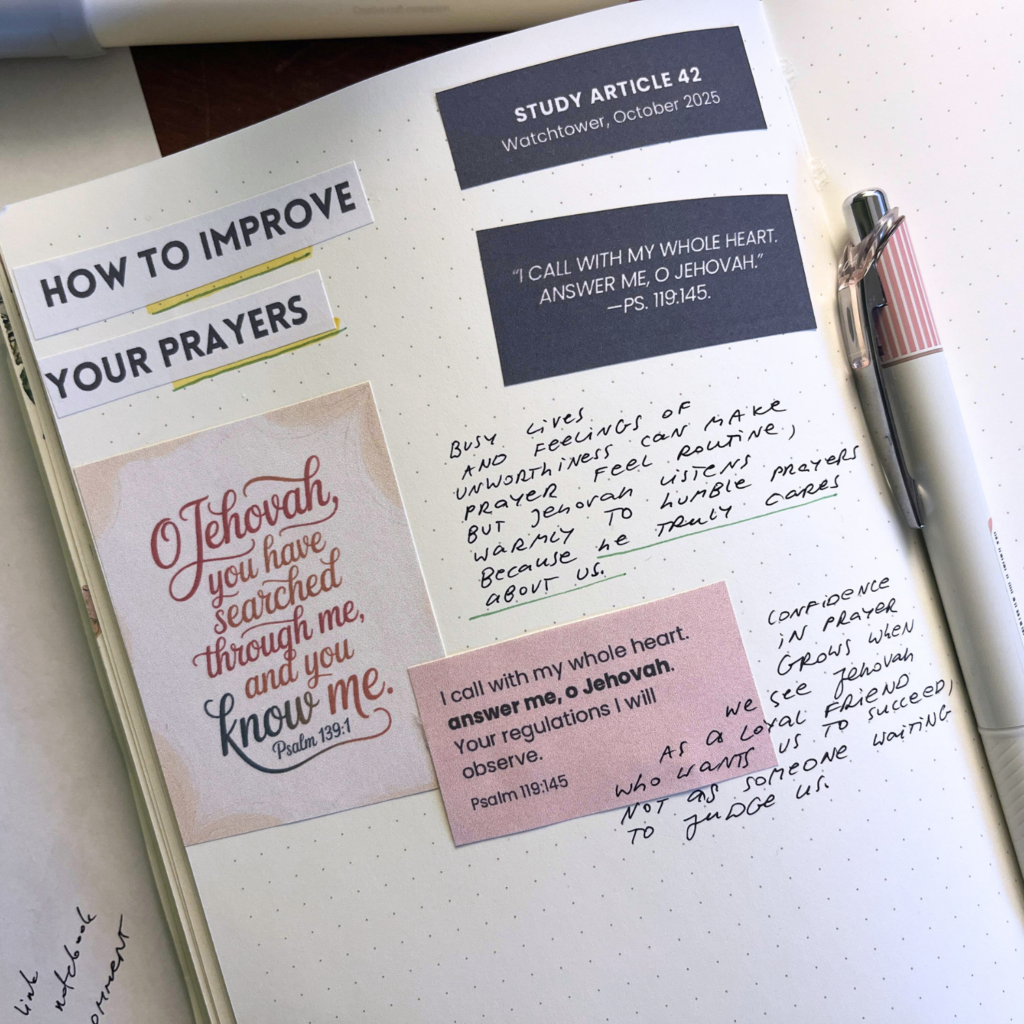 STUDY ARTICLE 42
Watchtower, October 2025
HOW TO IMPROVE
YOUR PRAYERS
“I CALL WITH MY WHOLE HEART.
ANSWER ME, O JEHOVAH.”
—PS. 119:145.
O Jehovah,
you have
searched
through me,
and you
know me.
Psalm 139:1
BUSY LIVES
AND FEELINGS OF
UNWORTHINESS CAN MAKE
PRAYER FEEL ROUTINE,
BUT JEHOVAH LISTENS
WARMLY TO HUMBLE PRAYERS
BECAUSE HE TRULY CARES
ABOUT US.
I call with my whole heart.
answer me, o Jehovah.
Your regulations I will
observe.
Psalm 119:145
CONFIDENCE
IN PRAYER
GROWS WHEN
WE SEE JEHOVAH
AS A LOYAL FRIEND
WHO WANTS US TO SUCCEED,
NOT AS SOMEONE WAITING
TO JUDGE US.
link
notebook